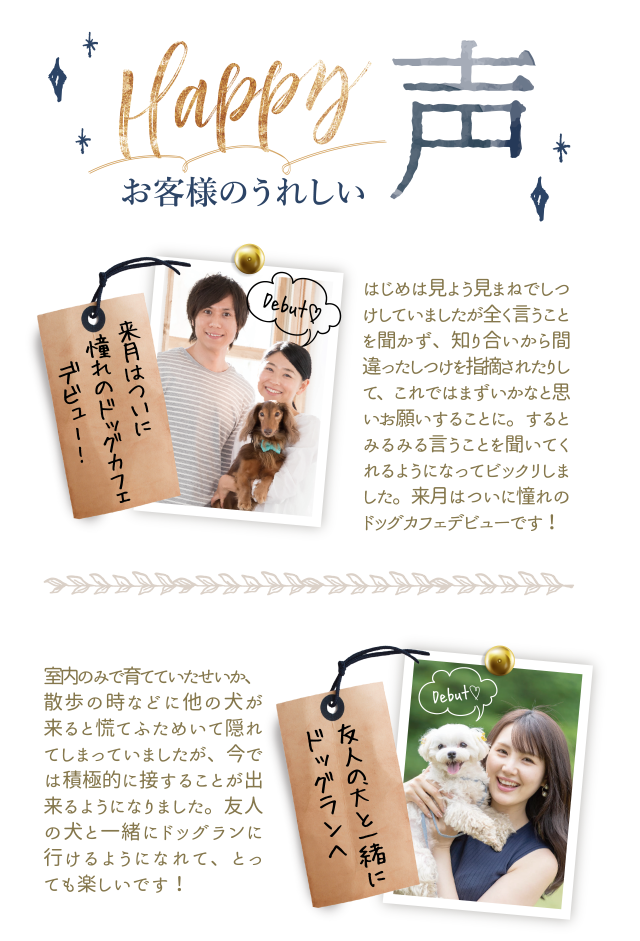 Happy 声
お客様のうれしい
Debut♡
来月はついに
憧れのドッグカフェ
デビュー！
はじめは見よう見まねでしつ
けしていましたが全く言うこと
を聞かず、知り合いから間
違ったしつけを指摘されたりし
て、これではまずいかなと思
いお願いすることに。すると
みるみる言うことを聞いてく
れるようになってビックリしま
した。来月はついに憧れの
ドッグカフェデビューです！
室内のみで育てていたせいか、
散歩の時などに他の犬が
来ると慌てふためいて隠れ
てしまっていましたが、今で
は積極的に接することが出
来るようになりました。友人
の犬と一緒にドッグランに
行けるようになれて、とっ
ても楽しいです！
Debut♡
友人の犬と一緒に
ドッグランへ